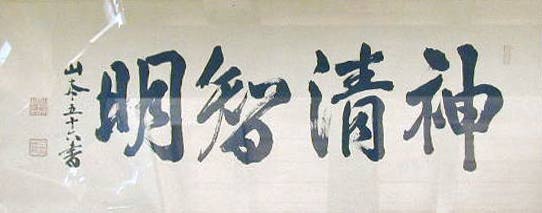 神清智明
山本五十六書